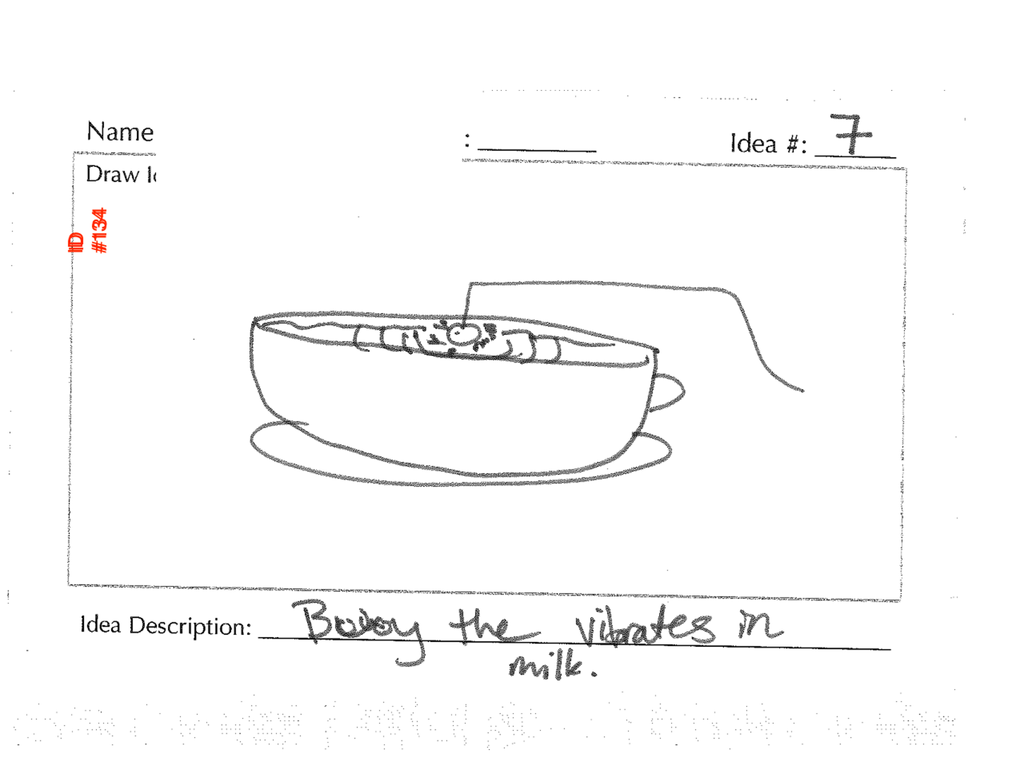 Name : Idea #: 7
Draw
ID
#134
Idea Description: the vibrates in
milk.